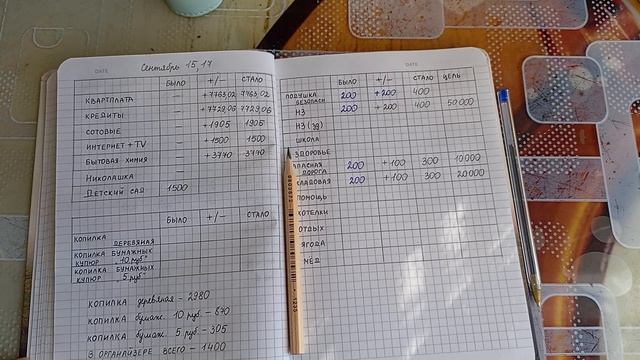 DATE
Сентябрь 15,17
БЫЛО +/- СТАЛО
КВАРТПЛАТА - +7763,02 7763,02
КРЕДИТЫ - +7729,06 7729,06
СОТОВЫЕ - +1905 1905
ИНТЕРНЕТ + TV - +1500 1500
БЫТОВАЯ ХИМИЯ - +3770 3770
НИКОЛАШКА -
ДЕТСКИЙ САД 1500
БЫЛО +/- СТАЛО
КОПИЛКА ДЕРЕВЯНАЯ
КОПИЛКА БУМАЖНЫХ
КУПЮР "10 РУБ"
КОПИЛКА БУМАЖНЫХ
КУПЮР "5 РУБ"
КОПИЛКА деревяная - 2980
КОПИЛКА бумаж. 10 руб. - 870
КОПИЛКА бумаж. 5 руб - 305
В ОРГАНАЙЗЕРЕ ВСЕГО - 1400
DATE
БЫЛО +/- СТАЛО ЦЕЛЬ
ПОДУШКА БЕЗОПАСН 200 +200 400
НЗ 200 +200 400 50 000
НЗ (зд)
ШКОЛА
ЗДОРОВЬЕ
ЗАПАСНАЯ ДОРОГА 200 +100 300 10000
КЛАДОВАЯ 200 +100 300 20000
ПОМОЩЬ
ХОТЕЛКИ
ОТДЫХ
ЯГОДА
МЁД